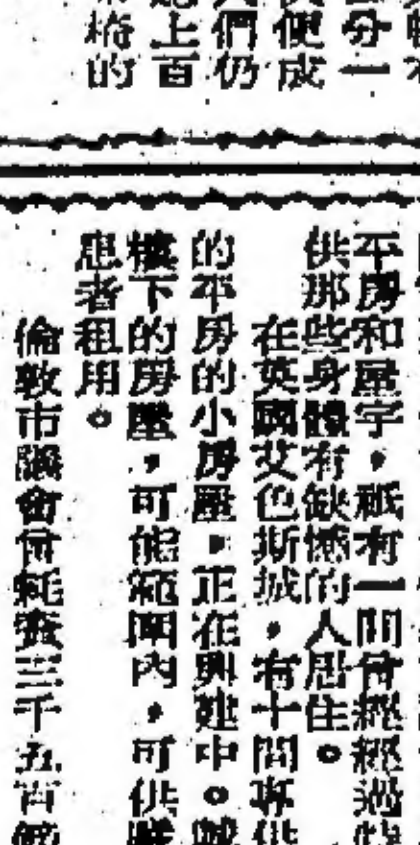 便成
們仍
上百
的
平房和屋宇，祇有一間曾經經過
供那些身體有缺憾的人居住。
在英國艾色斯城，有十間專供
的平房的小房屋，正在興建中。
樓下的房屋，可能範圍內，可供
患者租用。
倫敦市議會曾耗資三千五百鎊